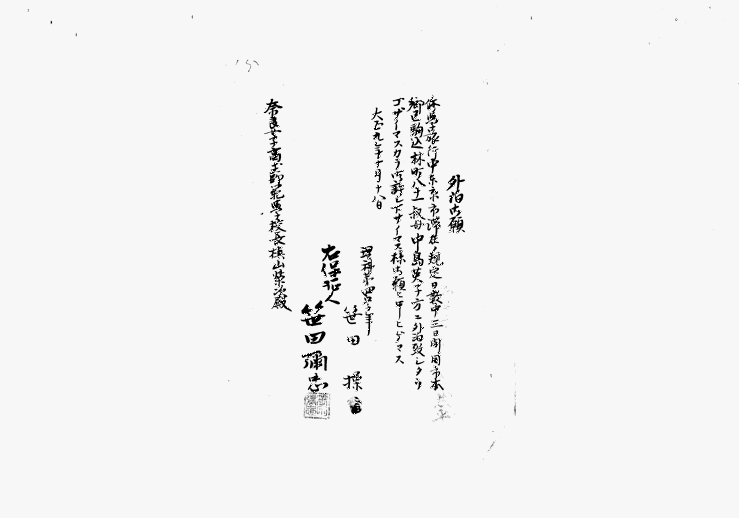 外泊御願
修学旅行中東京市滞在ノ規定日数中三日間同市本
郷区駒込林町八十一叔母中島英子方ニ外泊致シタウ
ゴザイマスカラ御許シ下サイマス様御願ヒ申上ゲマス
大正九年十月十八日
理科第四学年
笹田 操
右保証人
笹田彌忠
奈良女子高等師範学校長槙山栄次殿